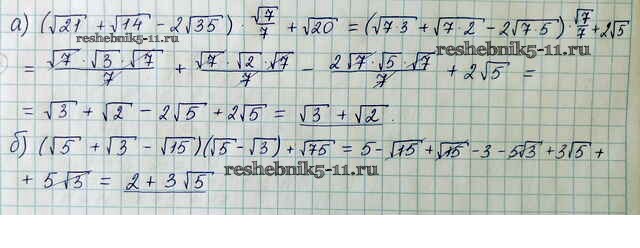 а) (√21 + √14 − 2√35) · √7/7 + √20 = (√7·3 + √7·2 − 2√7·5) · √7/7 + 2√5
reshebnik5-11.ru reshebnik5-11.ru
= √7 · √3 · √7/7 + √7 · √2 · √7/7 − 2√7 · √5 · √7/7 + 2√5 =
= √3 + √2 − 2√5 + 2√5 = √3 + √2.
б) (√5 + √3 − √15)(√5 − √3) + √75 = 5 − √15 + √15 − 3 − 5√3 + 3√5 +
+ 5√3 = 2 + 3√5
reshebnik5-11.ru